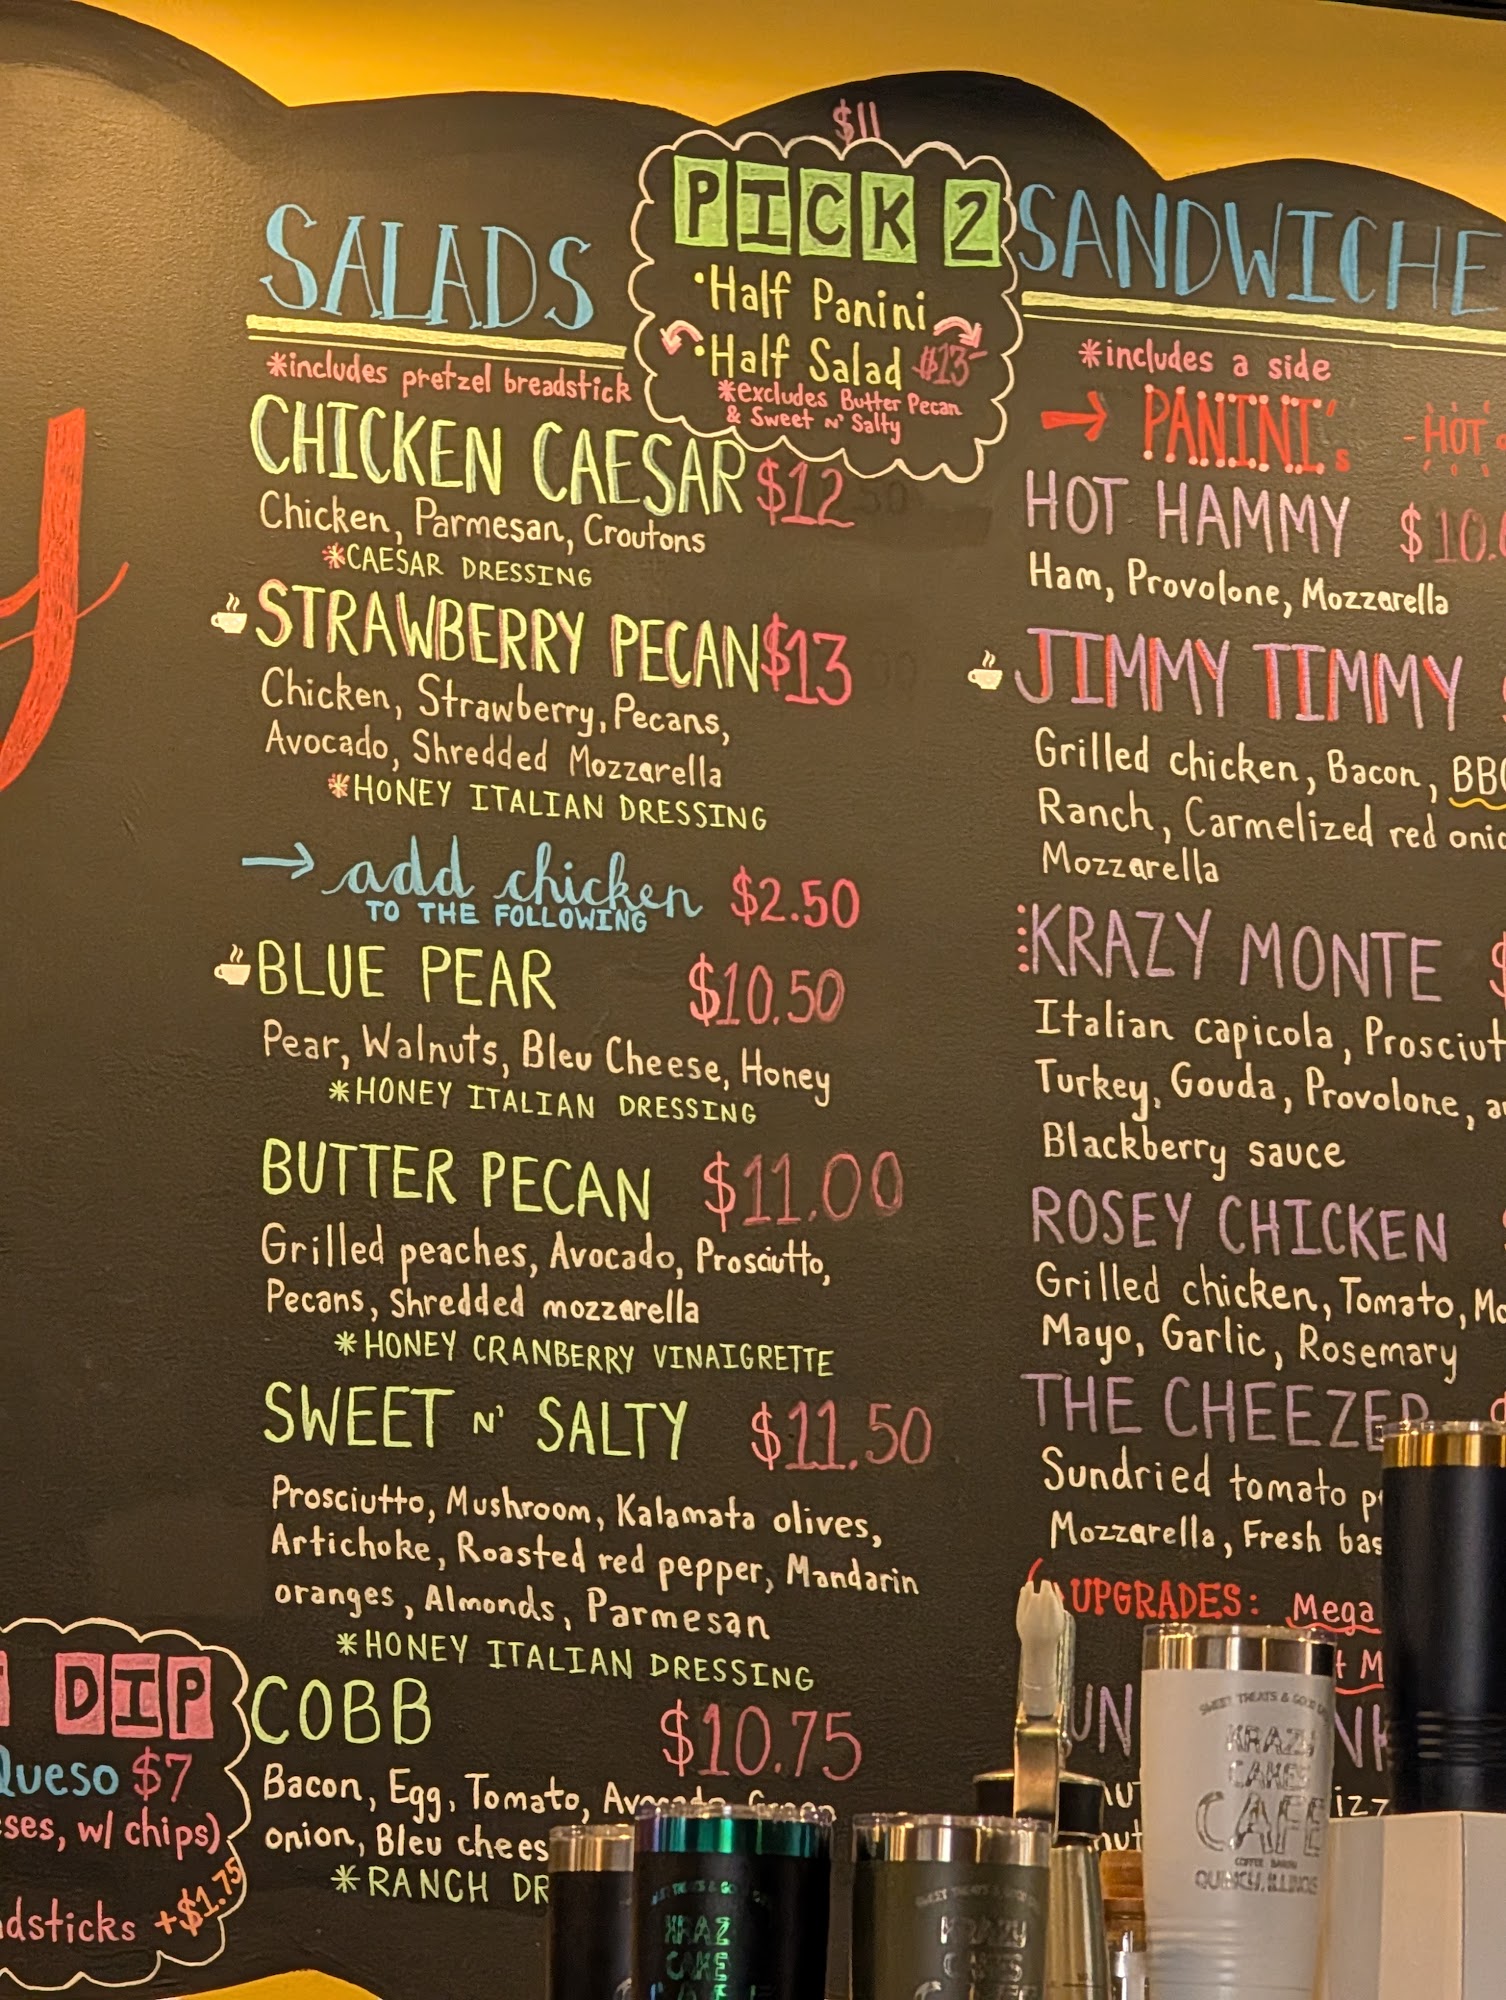 $11
PICK 2
•Half Panini
•Half Salad $13
*excludes Butter Pecan
& Sweet n' Salty
SALADS
*includes pretzel breadstick
CHICKEN CAESAR $12
Chicken, Parmesan, Croutons
*CAESAR DRESSING
STRAWBERRY PECAN $13
Chicken, Strawberry, Pecans,
Avocado, Shredded Mozzarella
*HONEY ITALIAN DRESSING
→ add chicken $2.50
TO THE FOLLOWING
BLUE PEAR $10.50
Pear, Walnuts, Bleu Cheese, Honey
*HONEY ITALIAN DRESSING
BUTTER PECAN $11.00
Grilled peaches, Avocado, Prosciutto,
Pecans, Shredded mozzarella
*HONEY CRANBERRY VINAIGRETTE
SWEET N' SALTY $11.50
Prosciutto, Mushroom, Kalamata olives,
Artichoke, Roasted red pepper, Mandarin
oranges, Almonds, Parmesan
*HONEY ITALIAN DRESSING
COBB $10.75
Bacon, Egg, Tomato, Avocado, Green
onion, Bleu chees
*RANCH DR
SANDWICHE
*includes a side
→ PANINI's -HOT
HOT HAMMY $10.
Ham, Provolone, Mozzarella
JIMMY TIMMY
Grilled chicken, Bacon, BBQ
Ranch, Carmelized red onio
Mozzarella
KRAZY MONTE $
Italian capicola, Prosciut
Turkey, Gouda, Provolone, a
Blackberry sauce
ROSEY CHICKEN
Grilled chicken, Tomato, Mo
Mayo, Garlic, Rosemary
THE CHEEZER
Sundried tomato p
Mozzarella, Fresh bas
UPGRADES: Mega
DIP
Queso $7
ses, w/ chips)
dsticks +$1.75
SWEET TREATS & GOOD
KRAZY
CAKES
CAFE
COFFEE BAKERY
QUINCY, ILLINOIS
KRAZ
CAKE
KRAZY
CAKES